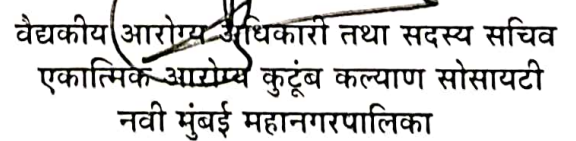 वैद्यकीय आरोग्य अधिकारी तथा सदस्य सचिव
एकात्मिक आरोग्य कुटूंब कल्याण सोसायटी
नवी मुंबई महानगरपालिका